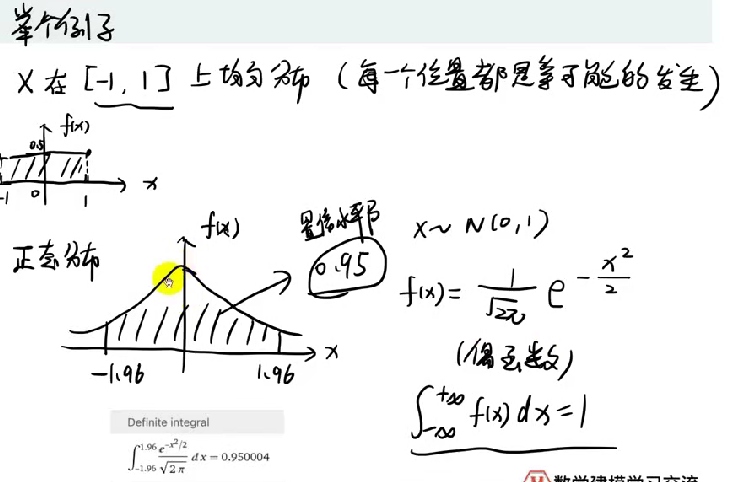 举个例子
X 在 [-1, 1] 上均匀分布 (每一个位置都是等可能的发生)
f(x)
0.5
-1 0 1 x
正态分布
f(x)
置信水平
0.95
-1.96 1.96 x
X~N(0,1)
f(x) = 1/√2π e^(-x²/2)
(偶函数)
∫_{-∞}^{+∞} f(x) dx = 1
Definite integral
∫_{-1.96}^{1.96} e^(-x²/2)/√(2 π) dx = 0.950004
数学建模学习交流